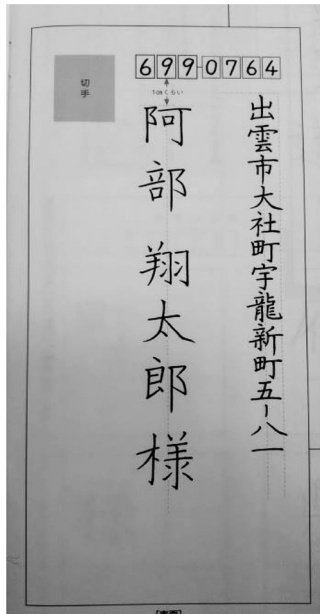 699-0764
切手
1cmくらい
出雲市大社町宇龍新町五-八一
阿部 翔太郎 様